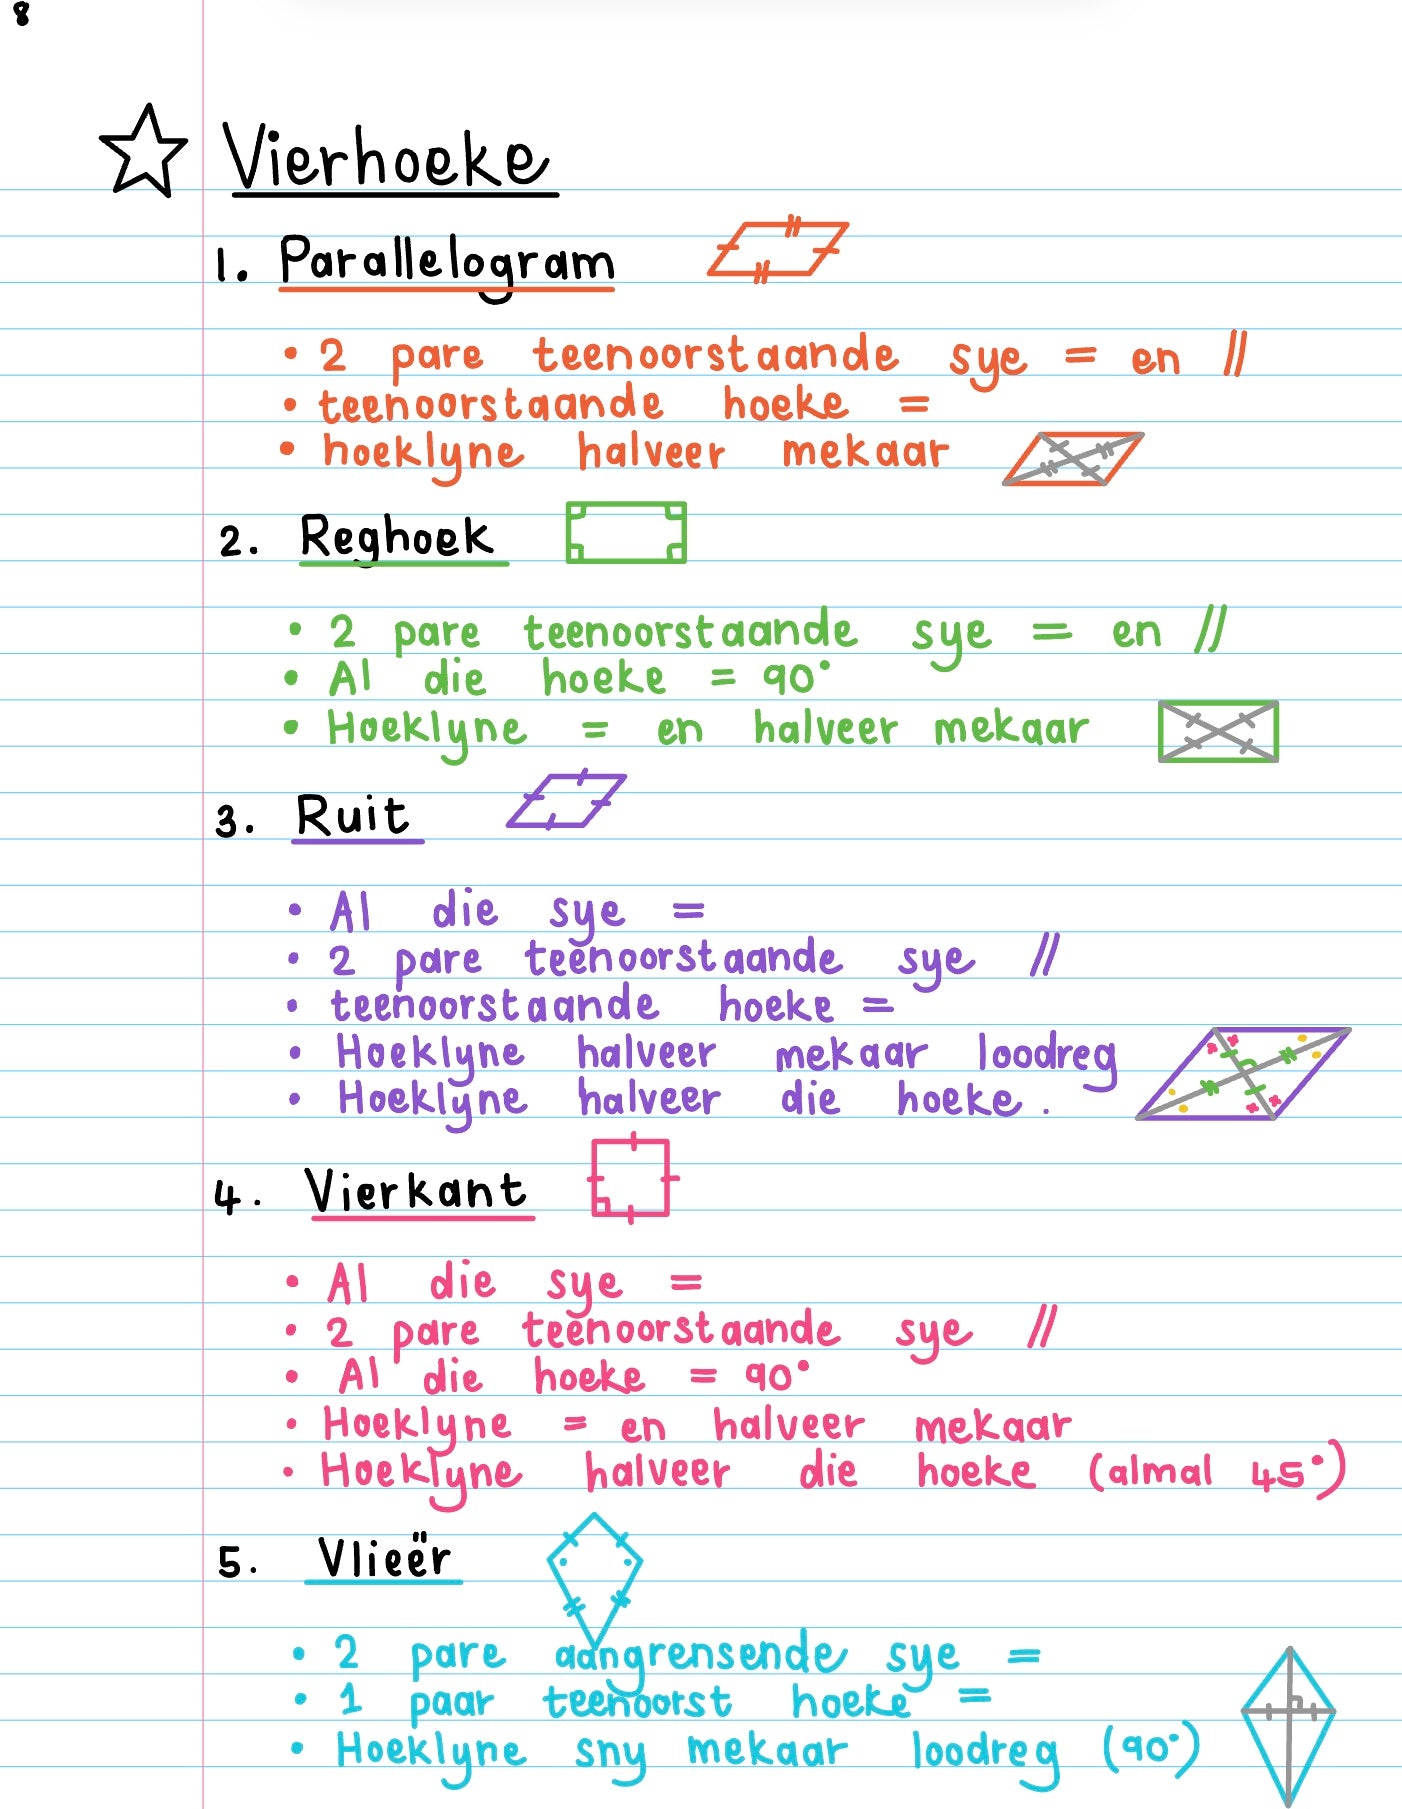 8
Vierhoeke
1. Parallelogram
• 2 pare teenoorstaande sye = en //
• teenoorstaande hoeke =
• hoeklyne halveer mekaar
2. Reghoek
• 2 pare teenoorstaande sye = en //
• Al die hoeke = 90°
• Hoeklyne = en halveer mekaar
3. Ruit
• Al die sye =
• 2 pare teenoorstaande sye //
• teenoorstaande hoeke =
• Hoeklyne halveer mekaar loodreg
• Hoeklyne halveer die hoeke.
4. Vierkant
• Al die sye =
• 2 pare teenoorstaande sye //
• Al die hoeke = 90°
• Hoeklyne = en halveer mekaar
• Hoeklyne halveer die hoeke (almal 45°)
5. Vlieër
• 2 pare aangrensende sye =
• 1 paar teenoorst hoeke =
• Hoeklyne sny mekaar loodreg (90°)